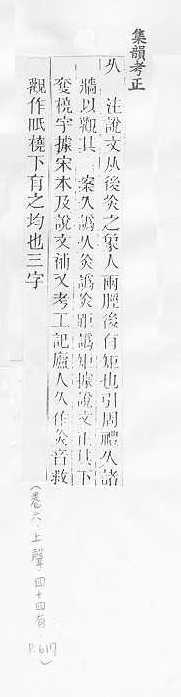 集韻考正
久 注說文从後灸之象人兩脛後有距也引周禮久諸
牆以觀其 案久譌乆灸譌炙距譌矩據說文正其下
夌橈字據宋本及說文補又考工記廬人久作灸音救
觀作眂橈下有之均也三字
(卷六.上聲四十四有 P.617)